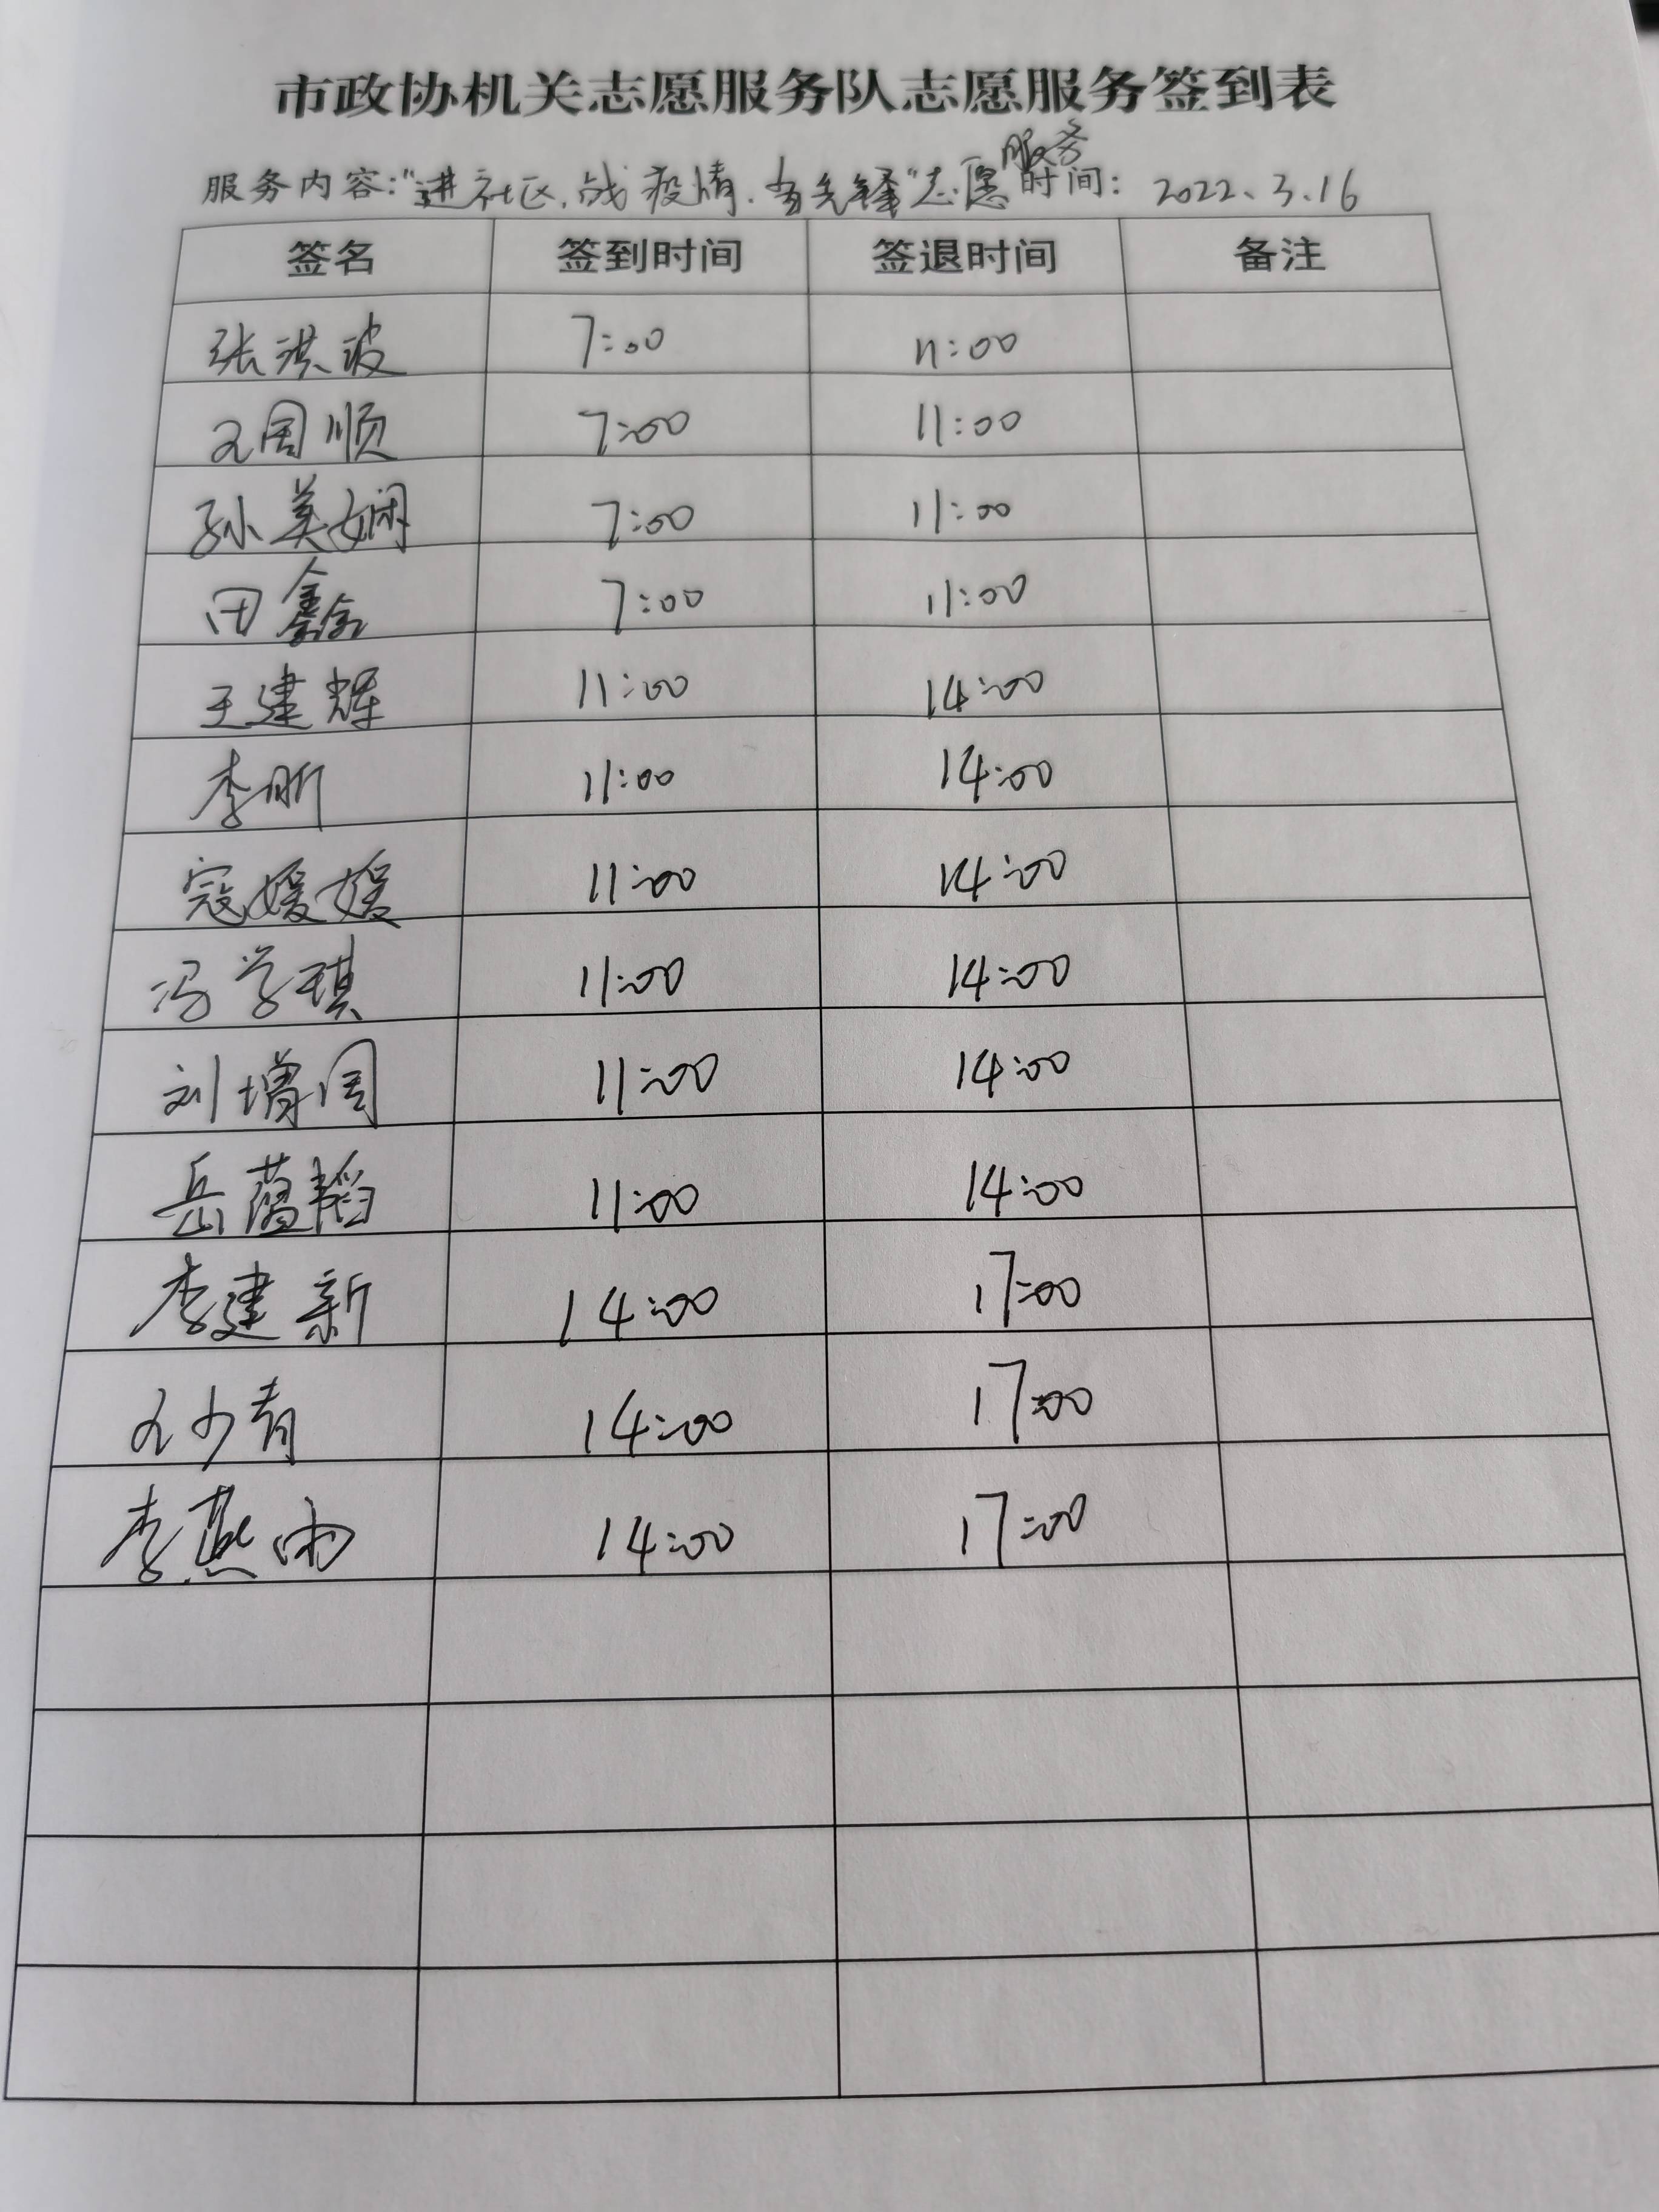 市政协机关志愿服务队志愿服务签到表
服务内容:"进社区,战疫情,当先锋"志愿服务 时间: 2022、3、16
签名 签到时间 签退时间 备注
张洪波 7:00 11:00
王国顺 7:00 11:00
孙美娴 7:00 11:00
田鑫 7:00 11:00
王建辉 11:00 14:00
李昕 11:00 14:00
寇媛媛 11:00 14:00
冯学琪 11:00 14:00
刘增周 11:00 14:00
岳蕴韬 11:00 14:00
李建新 14:00 17:00
王少青 14:00 17:00
李燕雨 14:00 17:00